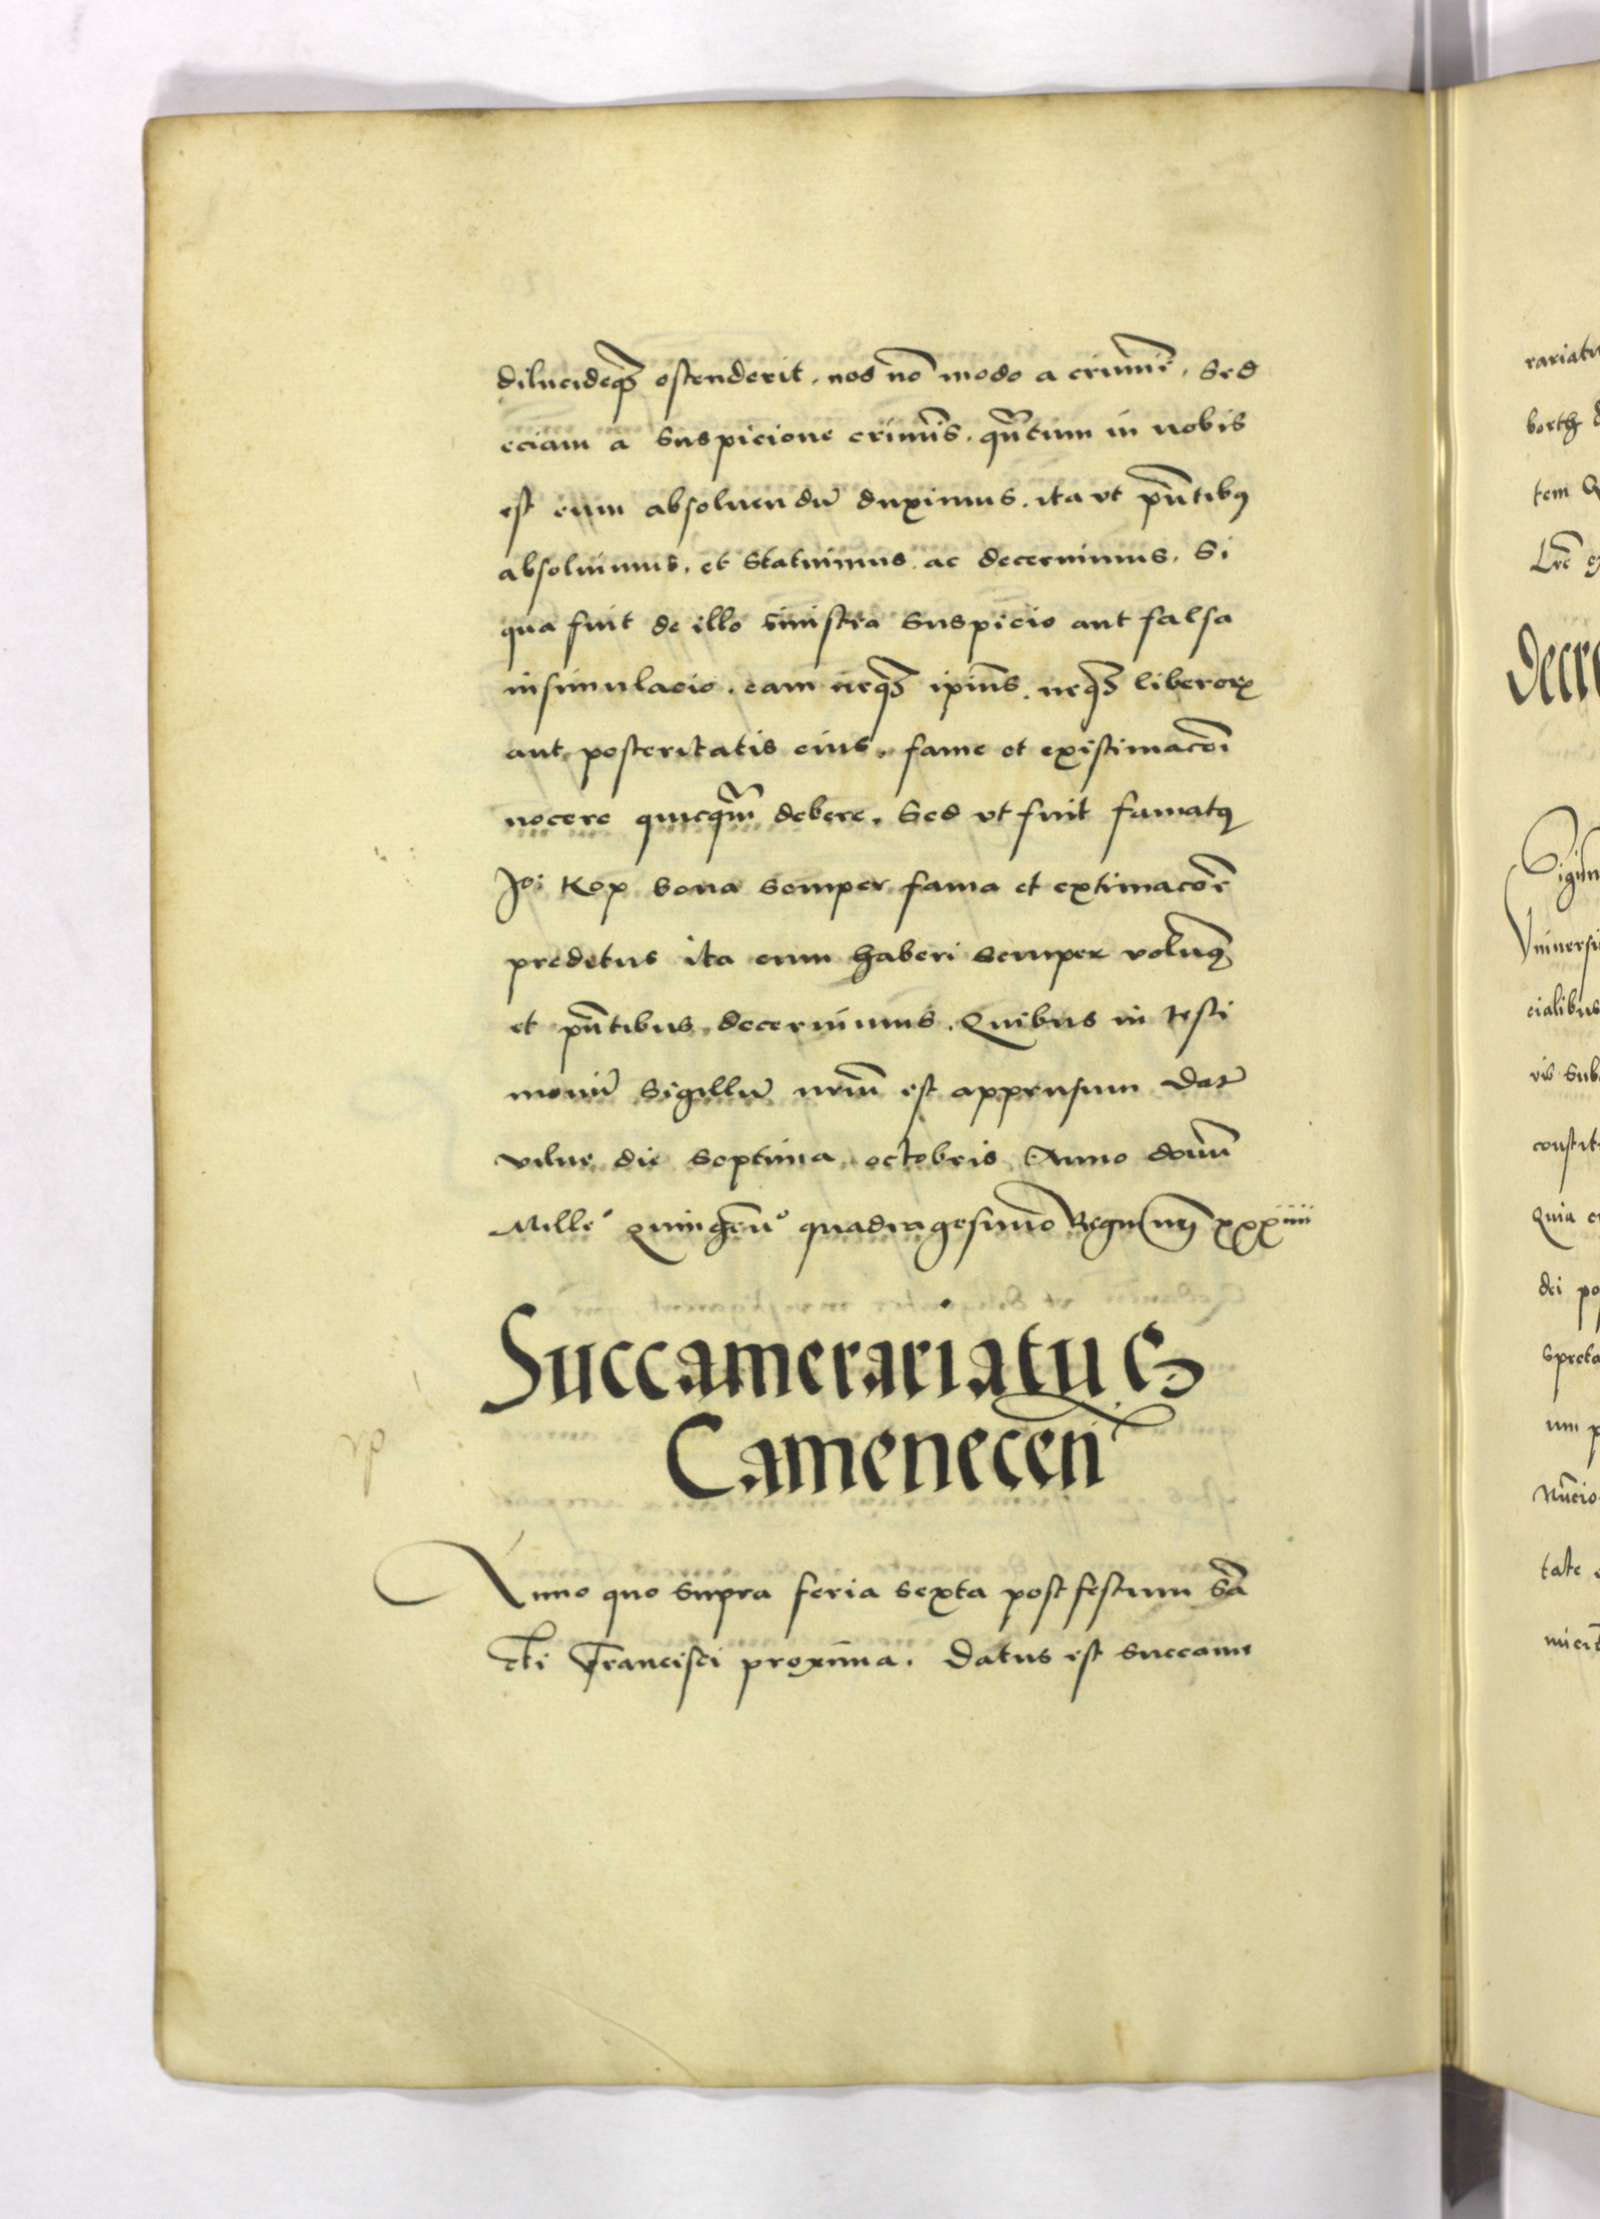 dilucideq̃ ostenderit, nos nõ modo a crimĩe, sed
eciam a suspicione crimĩs, quãtum in nobis
est eum absoluendũ duximus, ita vt pñtibus
absoluimus, et statuimus ac decernimus, Si
qua fuit de illo sinistra suspicio aut falsa
insimulacio, eam neq̃ ipĩus, neq̃ liberorꝝ
aut posteritatis eius, fame et existimacõi
nocere quicq̃m debere, Sed vt fuit famatus
Jo: Kop bona semper fama et extimacõe
preditus ita eum haberi semper volumus
et pñtibus decernimus, Quibus in testi
moniũ sigillũ nrũm est appensum Dat̃
vilne die septima octobris Anno domĩ
Mille° quingẽn° quadragesimo Regni nrĩ xxxiiii
Succamerariatus
Camenecen̄
Anno quo supra feria sexta post festum sã
cti Francisci proxima, Datus est succame
rariatu
borth
tem
Lrẽ
Decre
Sigism
Vniuersi
cialibus
vis sub
constit
Quia
dei po
spreta
um p
Nũcio
tate